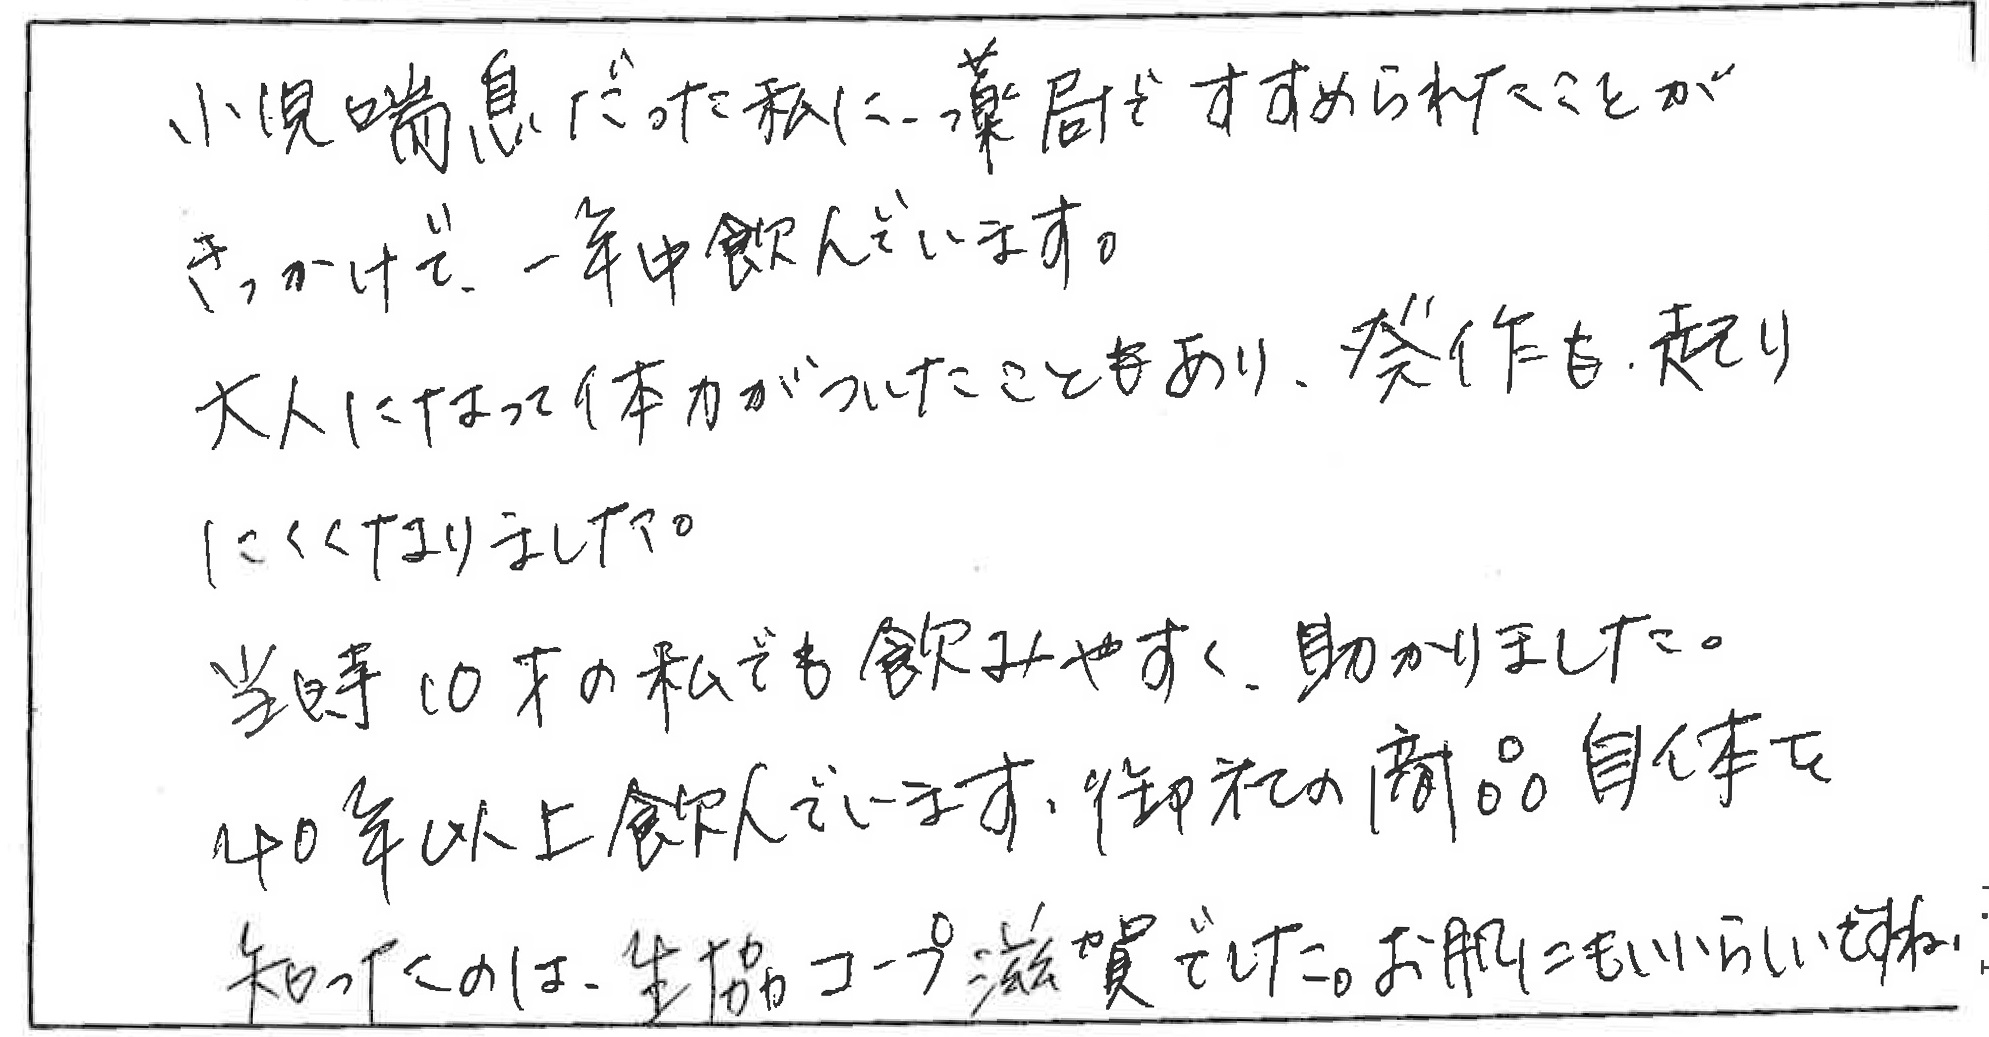 小児喘息だった私に、薬局ですすめられたことが
きっかけで、一年中飲んでいます。
大人になって体力がついたこともあり、発作も、起こり
にくくなりました。
当時10才の私でも飲みやすく、助かりました。
40年以上飲んでいます、御社の商品自体を
知ったのは、生協コープ滋賀でした。お肌にもいいらしいですね、